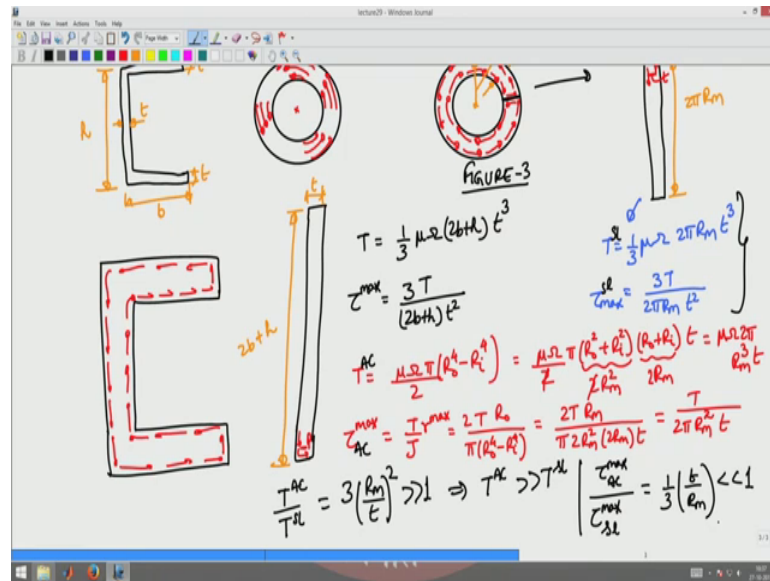 lecture29 - Windows Journal
File Edit View Insert Actions Tools Help
Page Width
B I
t
h
t
t
b
FIGURE-3
t
2πRm
t
2b+h
T = 1/3 μΩ (2b+h) t³
τ^max = 3T / (2b+h) t²
T^sl = 1/3 μΩ 2πRm t³
τ^sl_max = 3T / 2πRm t²
T^AC = μΩπ/2 (Ro⁴ - Ri⁴) = μΩ/2 π (Ro² + Ri²) (Ro + Ri) t = μΩ 2π Rm³ t
2Rm² 2Rm
τ^max_AC = T/J r^max = 2T Ro / π(Ro⁴ - Ri⁴) = 2T Rm / π 2Rm² (2Rm) t = T / 2πRm² t
T^AC / T^sl = 3 (Rm/t)² >> 1 ⇒ T^AC >> T^sl | τ^max_AC / τ^max_sl = 1/3 (t/Rm) << 1
3/3